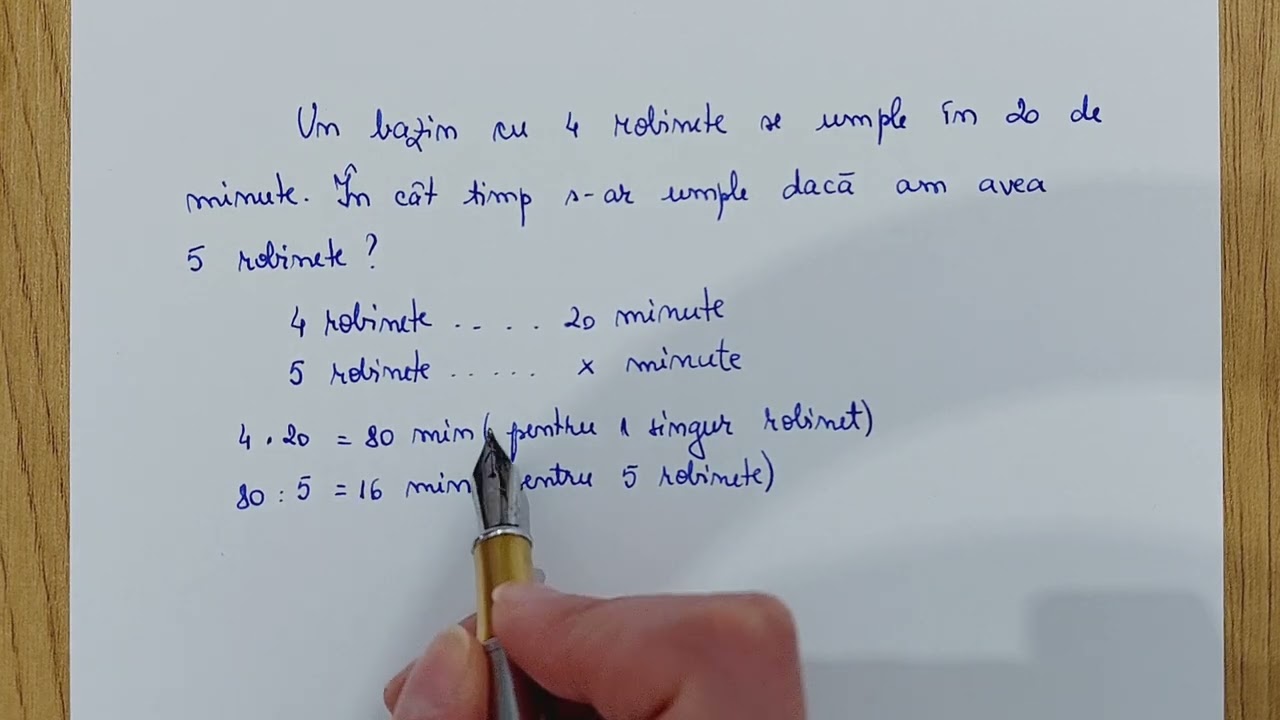 Un bazin cu 4 robinete se umple în 20 de
minute. În cât timp s-ar umple dacă am avea
5 robinete?
4 robinete ..... 20 minute
5 robinete ..... x minute
4 . 20 = 80 min (pentru 1 singur robinet)
80 : 5 = 16 min 5 robinete)